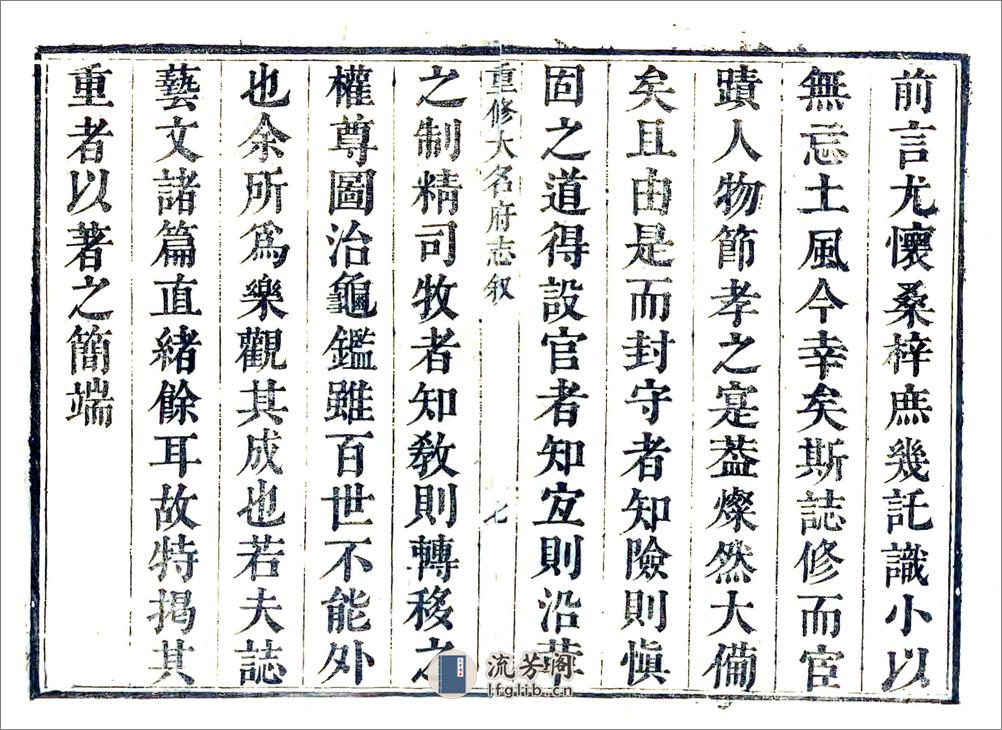 前言尤懷桑梓庶幾託識小以
無忘土風今幸矣斯誌修而宦
蹟人物節孝之寔葢燦然大備
矣且由是而封守者知險則慎
固之道得設官者知宐則沿革
重修大名府志叙
七
之制精司牧者知敎則轉移之
權尊圖治龜鑑雖百世不能外
也余所爲樂觀其成也若夫誌
藝文諸篇直緒餘耳故特掲其
重者以著之簡端
流芳閣
lfglib.cn